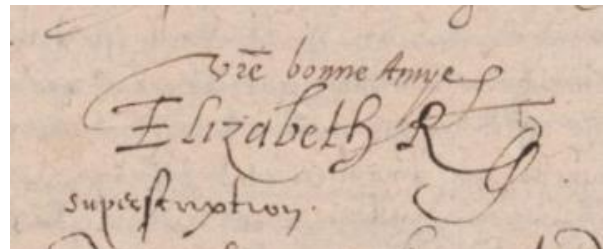 vrē bonne Amye
Elizabeth R
superscription.